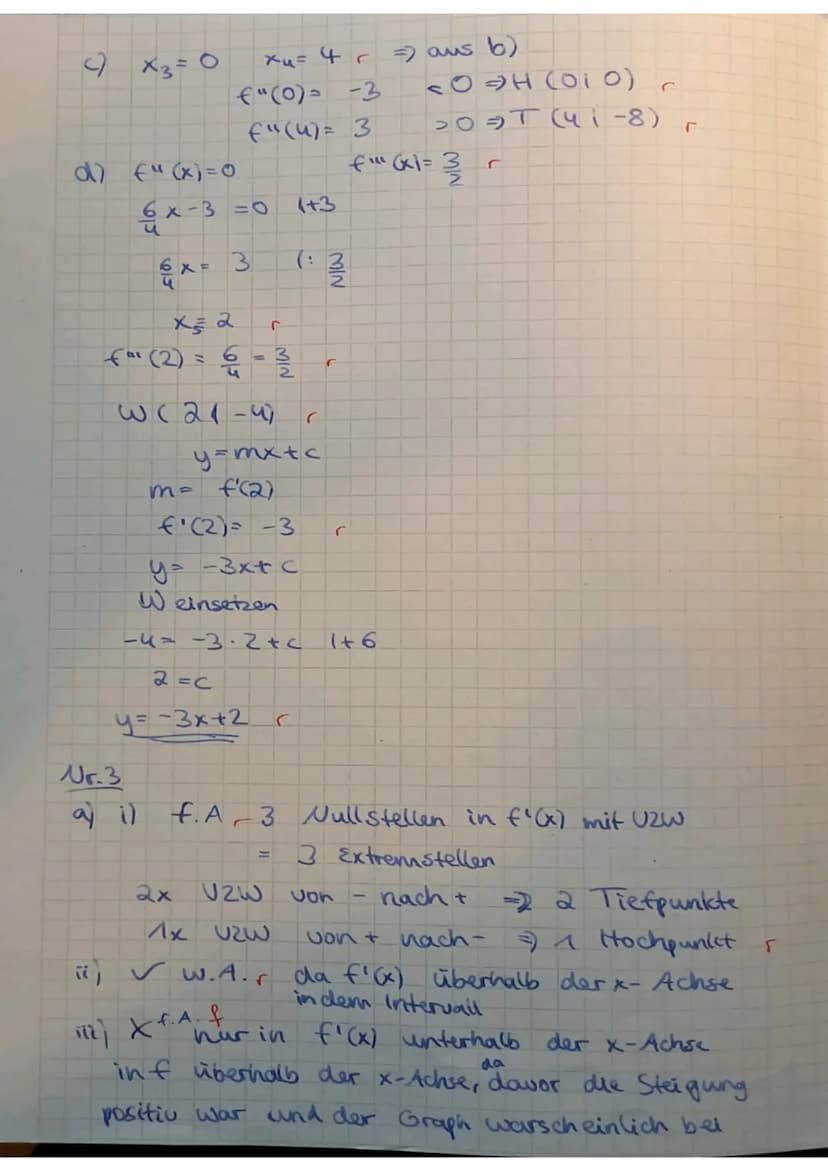 c) x₃ = 0 x₄ = 4 r ⇒ aus b)
f''(0) = -3 < 0 ⇒ H (0 | 0) r
f''(4) = 3 > 0 ⇒ T (4 | -8) r
d) f''(x) = 0 f'''(x) = 3/2 r
6/4 x - 3 = 0 |+3
6/4 x = 3 |: 3/2
x₅ = 2 r
f'''(2) = 6/4 = 3/2 r
W (2 | -4) r
y = mx + c
m = f'(2)
f'(2) = -3 r
y = -3x + c
W einsetzen
-4 = -3 · 2 + c |+6
2 = c
y = -3x + 2 r
Nr. 3
a) i) f.A r 3 Nullstellen in f'(x) mit VZW
= 3 Extremstellen
2x VZW von - nach + ⇒ 2 Tiefpunkte
1x VZW von + nach - ⇒ 1 Hochpunkt r
ii) ✓ w.A. r da f'(x) überhalb der x-Achse
in dem Intervall
iii) X f.A. f nur in f'(x) unterhalb der x-Achse
in f überhalb der x-Achse, da davor die Steigung
positiv war und der Graph warscheinlich bei